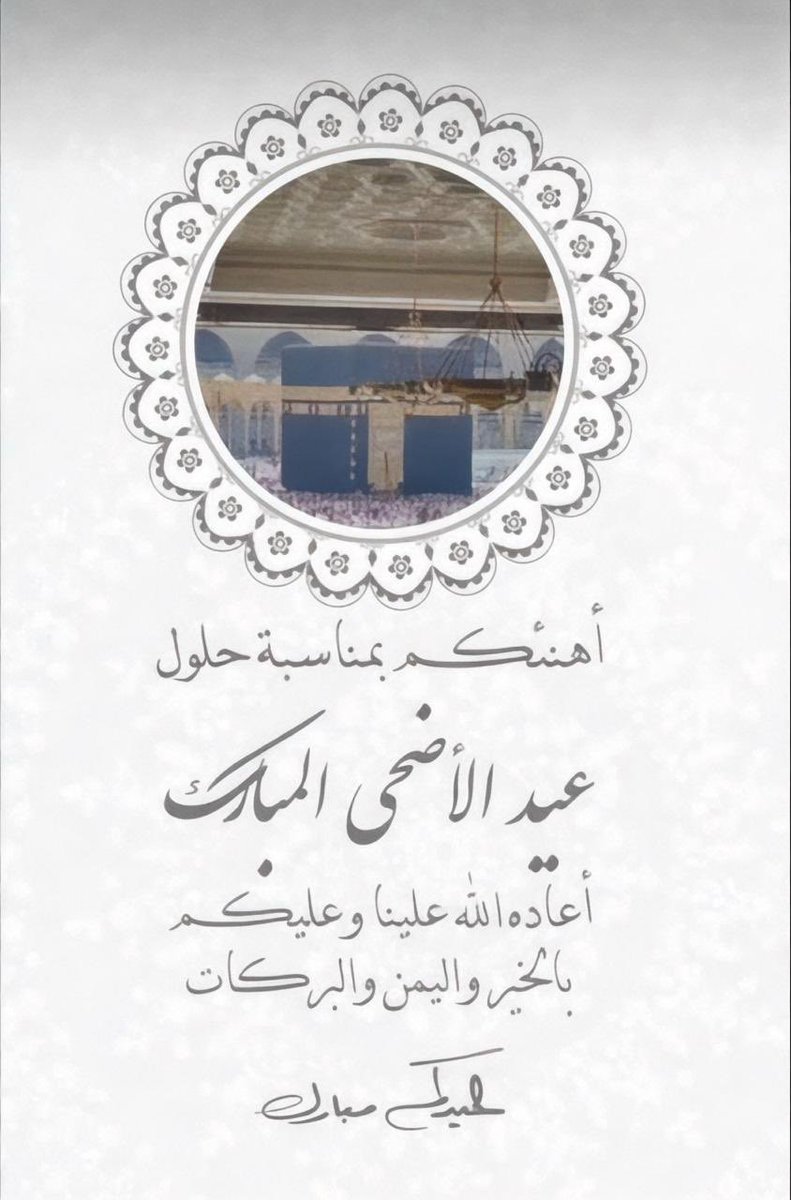 أهنئكم بمناسبة حلول
عيد الأضحى المبارك
أعاده الله علينا وعليكم
بالخير واليمن والبركات
عيدكم مبارك